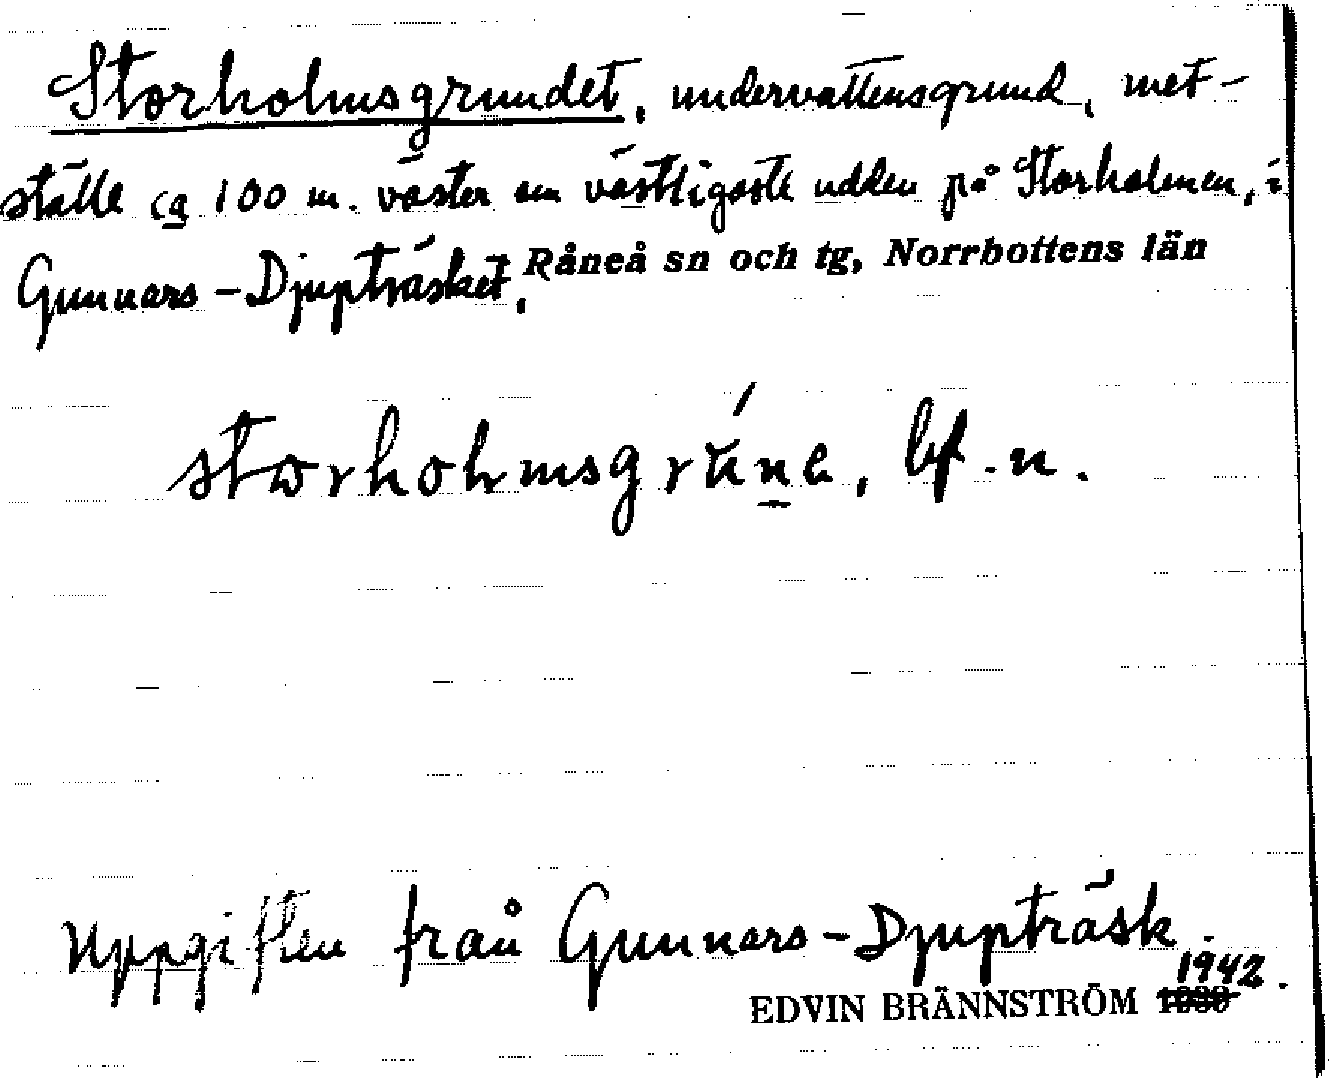 Storholmsgrundet, undervattensgrund, met-
ställe ca 100 m. väster om västligaste udden på Storholmen, i
Gunnars-Djupträsket, Råneå sn och tg, Norrbottens län
storholmsgrún̲e, bf. n.
Uppgiften från Gunnars-Djupträsk.
1942.
EDVIN BRÄNNSTRÖM